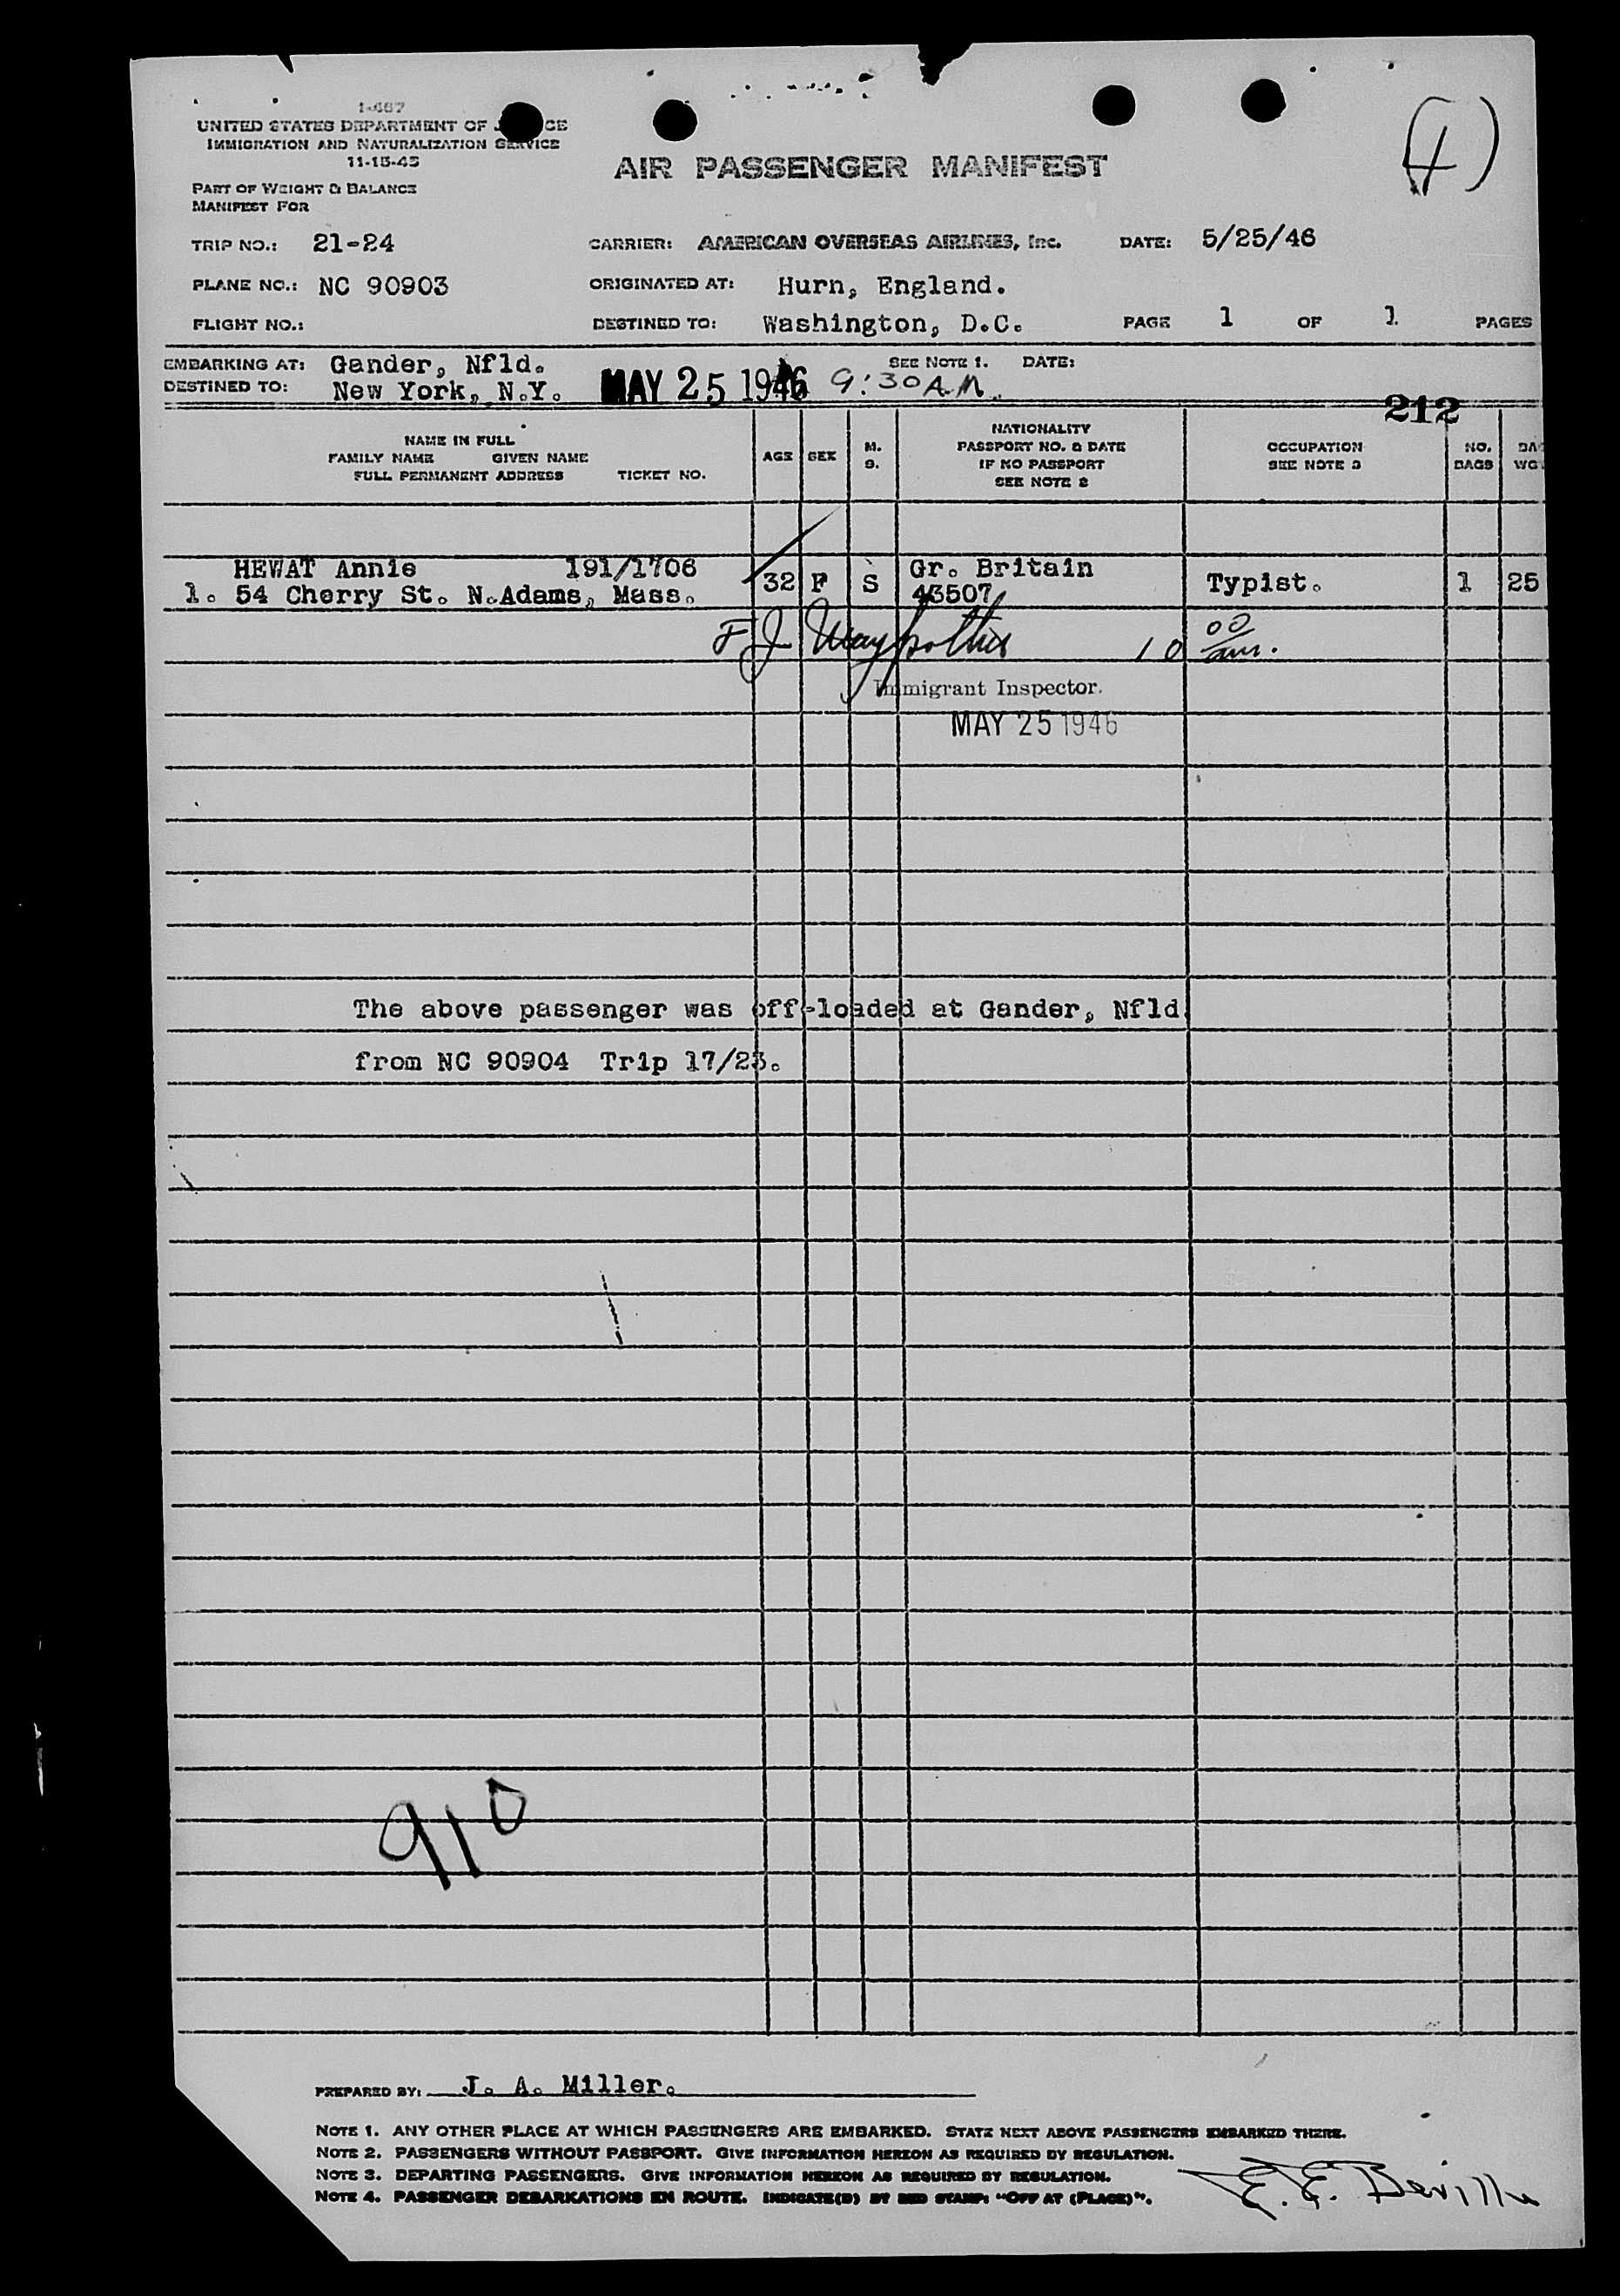 I-467
UNITED STATES DEPARTMENT OF J CE
IMMIGRATION AND NATURALIZATION SERVICE
11-15-45
AIR PASSENGER MANIFEST
(4)
PART OF WEIGHT & BALANCE
MANIFEST FOR
TRIP NO.: 21-24 CARRIER: AMERICAN OVERSEAS AIRLINES, Inc. DATE: 5/25/46
PLANE NO.: NC 90903 ORIGINATED AT: Hurn, England.
FLIGHT NO.: DESTINED TO: Washington, D.C. PAGE 1 OF 1 PAGES
EMBARKING AT: Gander, Nfld. SEE NOTE 1. DATE:
DESTINED TO: New York, N.Y. MAY 25 1946 9:30 A.M.
212
NAME IN FULL
FAMILY NAME GIVEN NAME
FULL PERMANENT ADDRESS TICKET NO.
AGE SEX M.
S.
NATIONALITY
PASSPORT NO. & DATE
IF NO PASSPORT
SEE NOTE 2
OCCUPATION
SEE NOTE 3
NO.
BAGS
HEWAT Annie 191/1706 32 F S Gr. Britain Typist. 1 25
1. 54 Cherry St. N.Adams, Mass. 43507
F J 10 00
Immigrant Inspector.
MAY 25 1946
The above passenger was off-loaded at Gander, Nfld
from NC 90904 Trip 17/23.
910
PREPARED BY: J. A. Miller.
NOTE 1. ANY OTHER PLACE AT WHICH PASSENGERS ARE EMBARKED. STATE NEXT ABOVE PASSENGERS EMBARKED THERE.
NOTE 2. PASSENGERS WITHOUT PASSPORT. GIVE INFORMATION HEREON AS REQUIRED BY REGULATION.
NOTE 3. DEPARTING PASSENGERS. GIVE INFORMATION HEREON AS REQUIRED BY REGULATION.
NOTE 4. PASSENGER DEBARKATIONS EN ROUTE. INDICATE(D) BY RED STAMP: "OFF AT (PLACE)".
E. E.